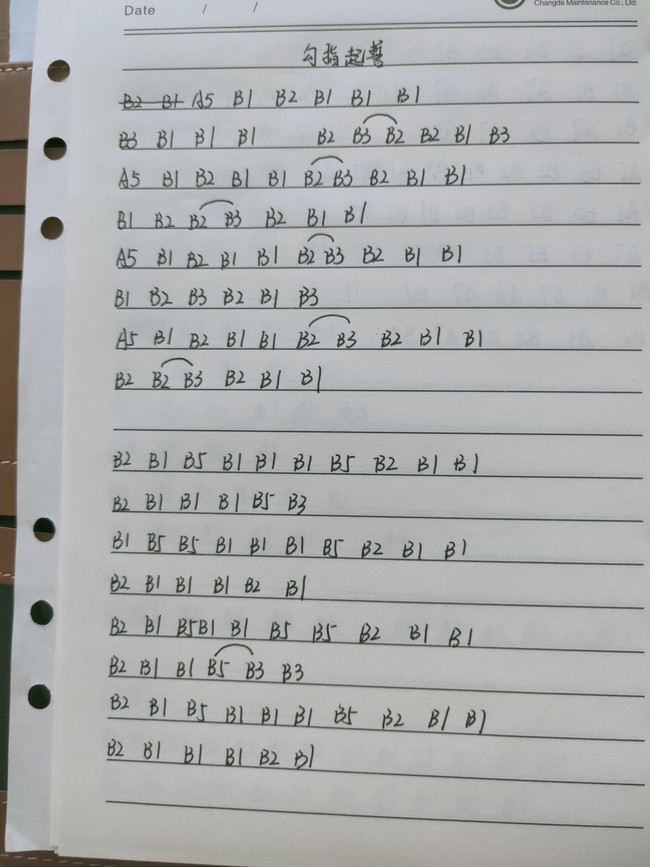 Changda Maintenance Co., Ltd.
Date / /
勾指起誓
B2 B1 A5 B1 B2 B1 B1 B1
B3 B1 B1 B1 B2 B3 B2 B2 B1 B3
A5 B1 B2 B1 B1 B2 B3 B2 B1 B1
B1 B2 B2 B3 B2 B1 B1
A5 B1 B2 B1 B1 B2 B3 B2 B1 B1
B1 B2 B3 B2 B1 B3
A5 B1 B2 B1 B1 B2 B3 B2 B1 B1
B2 B2 B3 B2 B1 B1
B2 B1 B5 B1 B1 B1 B5 B2 B1 B1
B2 B1 B1 B1 B5 B3
B1 B5 B5 B1 B1 B1 B5 B2 B1 B1
B2 B1 B1 B1 B2 B1
B2 B1 B5 B1 B1 B5 B5 B2 B1 B1
B2 B1 B1 B5 B3 B3
B2 B1 B5 B1 B1 B1 B5 B2 B1 B1
B2 B1 B1 B1 B2 B1